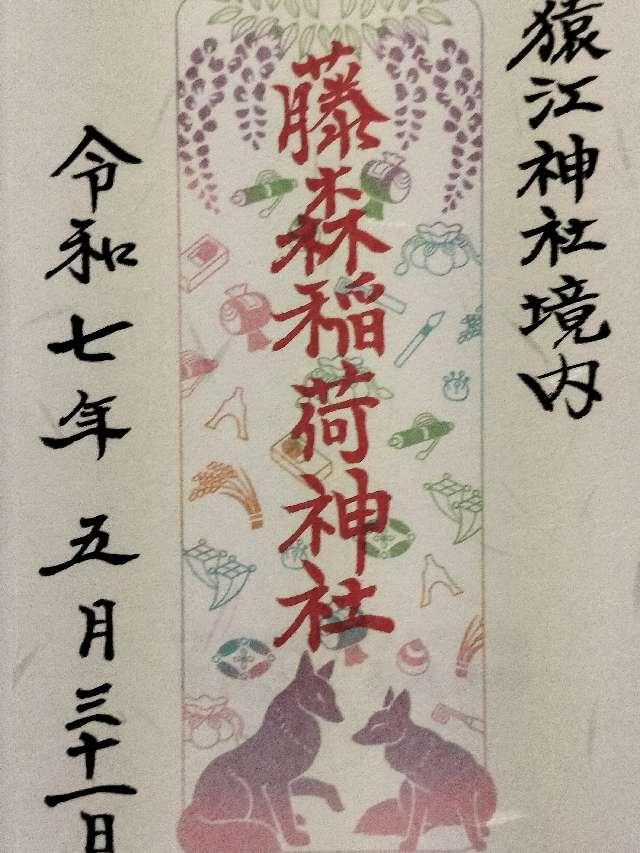 猿江神社境内
藤森稲荷神社
令和七年 五月三十一日